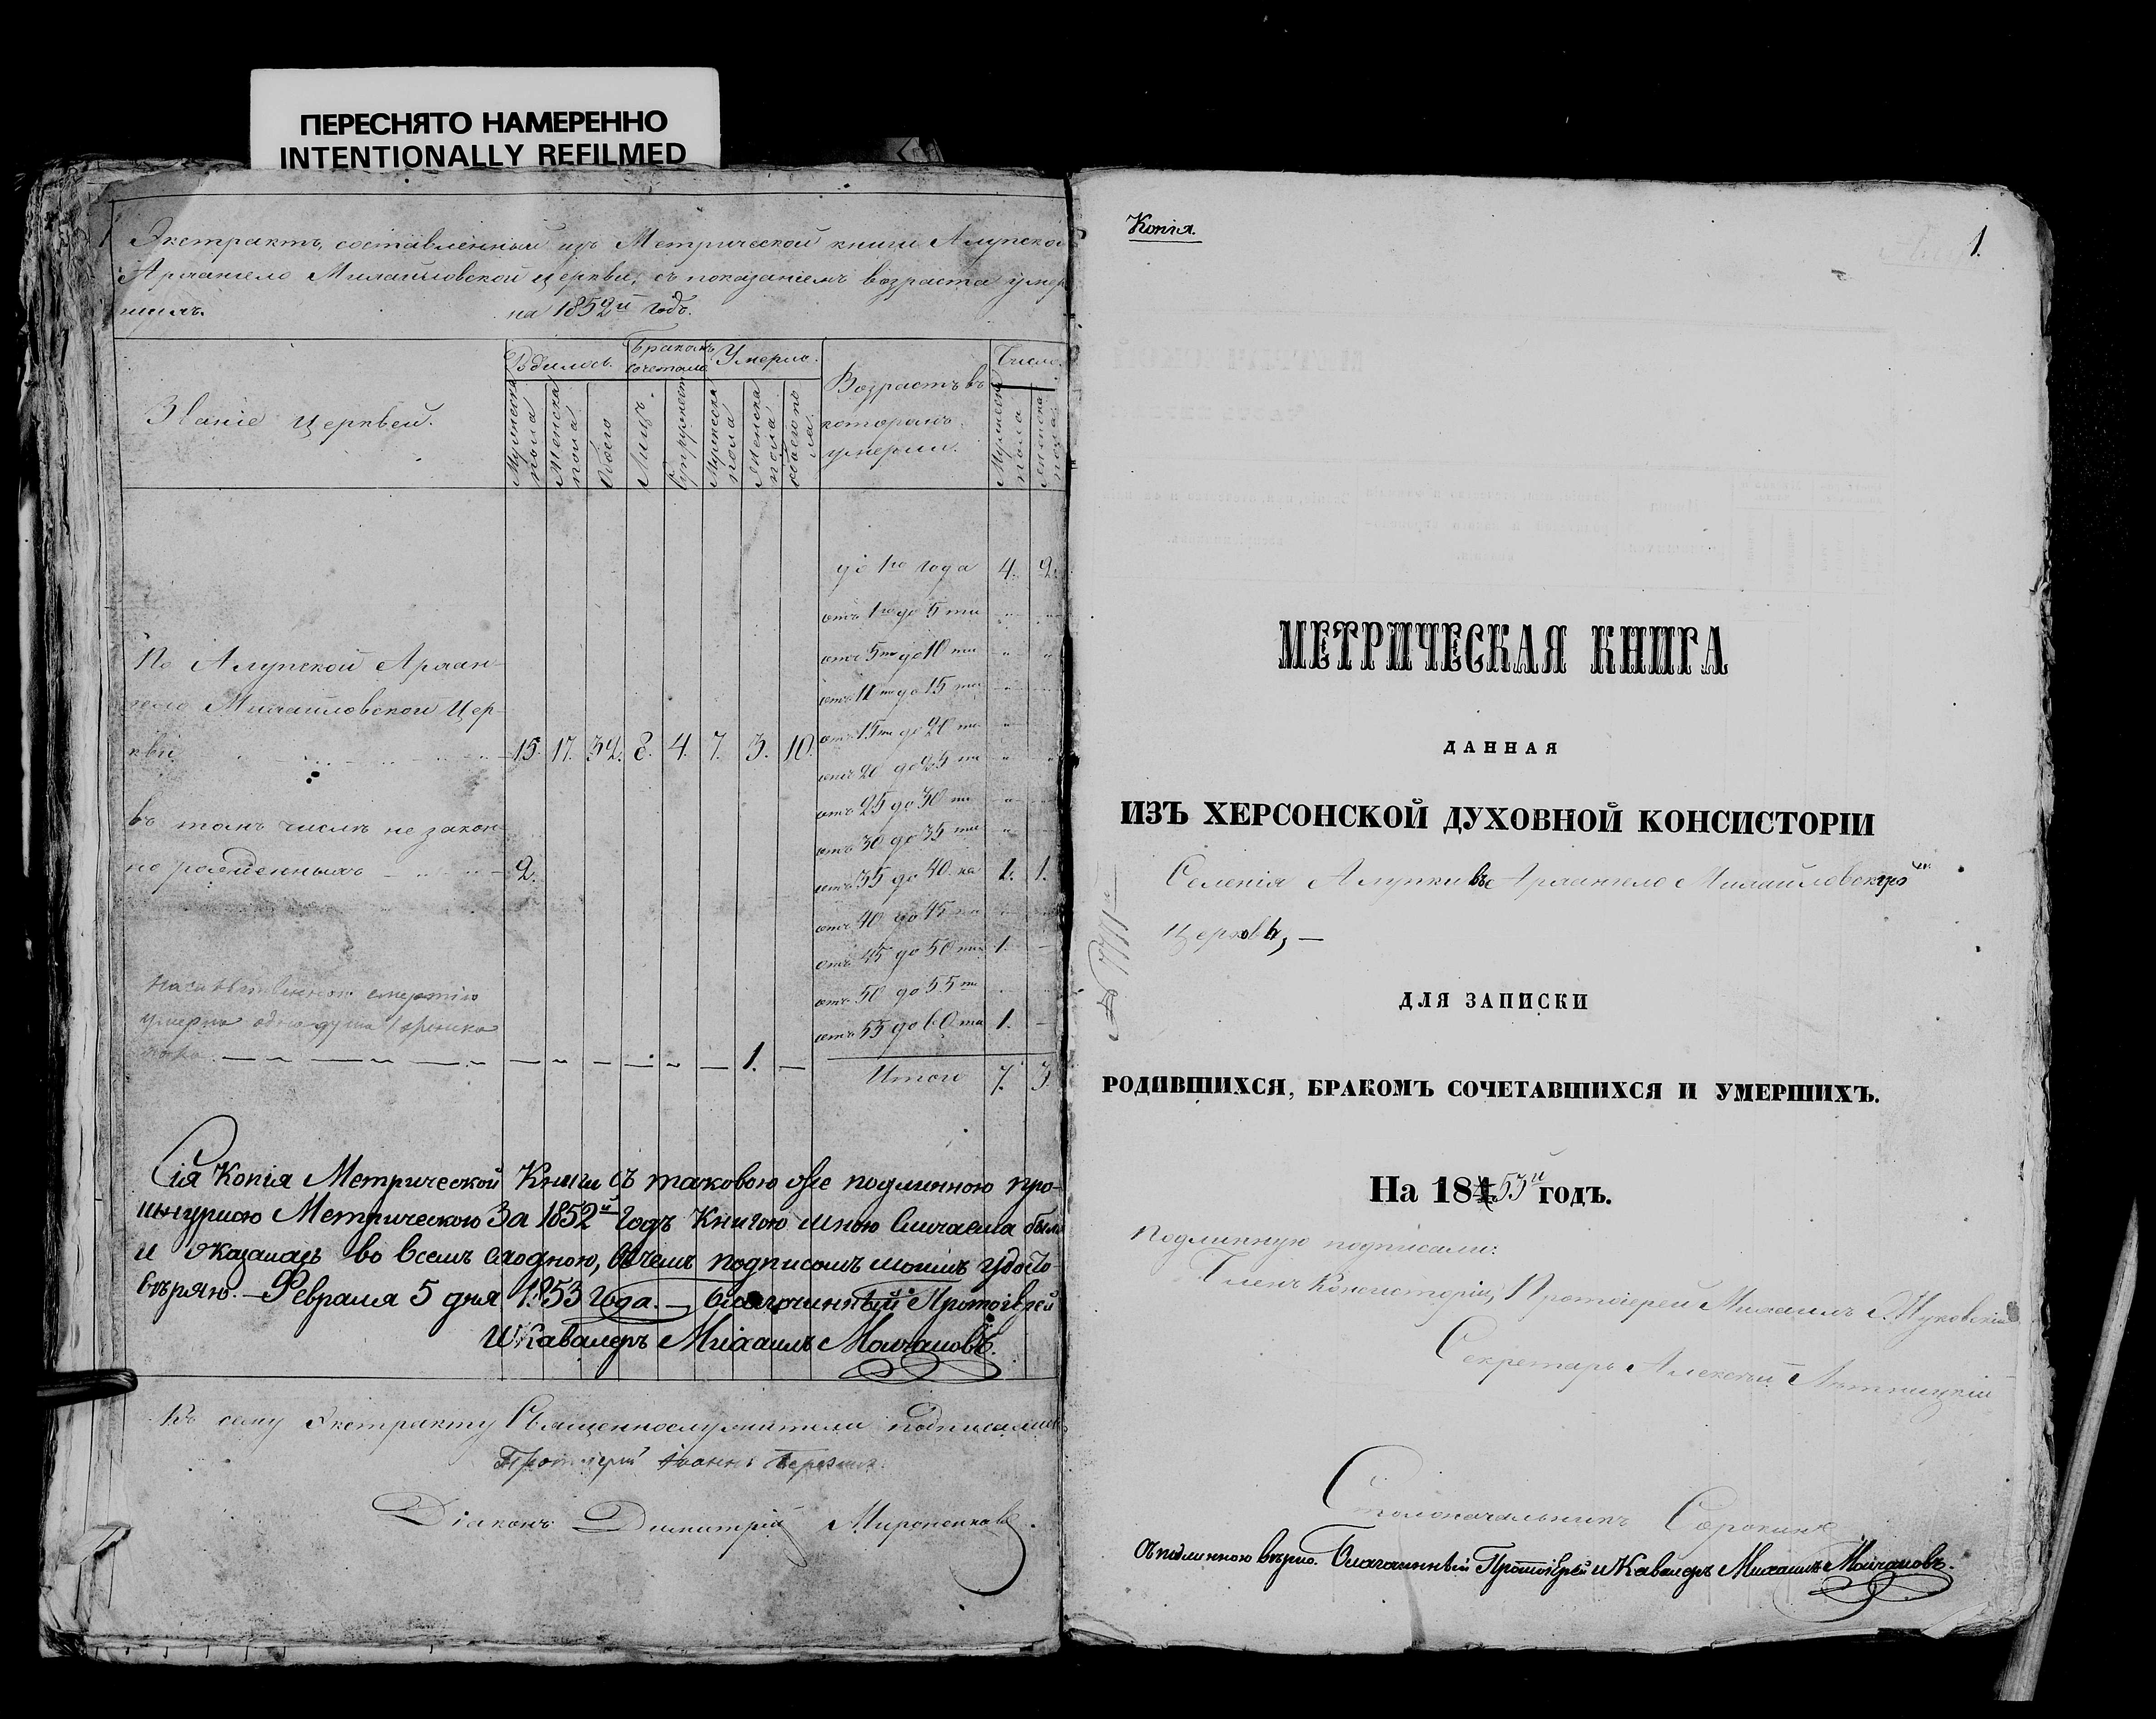 ПЕРЕСНЯТО НАМЕРЕННО
INTENTIONALLY REFILMED
Экстрактъ, составленный изъ Метрической книги Алупской
Архангело Михайловской церкви, съ показаніемъ возраста умер
шихъ. на 1852й годъ.
Званіе церквей.
Родилось.
Бракомъ
сочеталось
Умерло.
Возрастъ въ
которомъ
умерли.
Число.
Мужеска
пола
Женска
пола
Обоего
Лицъ.
Супружествъ
Мужеска
пола
Женска
пола
обоего по
ла.
Мужеска
пола
Женска
пола
до 1го года 4. 2.
отъ 1го до 5ти
отъ 5ти до 10ти
отъ 10ти до 15ти
отъ 15ти до 20ти
отъ 20 до 25ти
отъ 25 до 30ти
отъ 30 до 35ти
отъ 35 до 40ка 1. 1.
отъ 40 до 45ти
отъ 45 до 50ти 1. —
отъ 50 до 55ти
отъ 55 до 60ти 1. —
Итого 7. 3.
По Алупской Архан-
гело Михайловской Цер-
кви 15. 17. 32. 8. 4. 7. 3. 10.
въ томъ числѣ не закон-
но рожденныхъ 2.
смертію
умерла одна душа женска
пола. 1.
Сія Копія Метрической Книги съ таковою же подлинною про-
шнурною Метрическою За 1852й Годъ Книгою мною Сличаема была
и оказалась во всемъ сходною, въ чемъ подписомъ моимъ удосто-
вѣряю. — Февраля 5 дня 1853 Года. — Благочинный Протоіерей
и Кавалеръ Михаилъ Молчановъ.
Къ сему Экстракту Священнослужители подписались
Протоіерей Іоаннъ
Діаконъ Димитрій Мироненковъ.
Копія.
1.
МЕТРИЧЕСКАЯ КНИГА
ДАННАЯ
ИЗЪ ХЕРСОНСКОЙ ДУХОВНОЙ КОНСИСТОРІИ
Селенія Алупки въ Архангело Михайловскую
Церковь, —
ДЛЯ ЗАПИСКИ
РОДИВШИХСЯ, БРАКОМЪ СОЧЕТАВШИХСЯ И УМЕРШИХЪ.
На 1853й годъ.
Подлинную подписали:
Членъ Консисторіи, Протоіерей Михаилъ
Секретарь Алексѣй
Столоначальникъ Сорокинъ
Съ подлинною вѣрно. Благочинный Протоіерей и Кавалеръ Михаилъ Молчановъ.